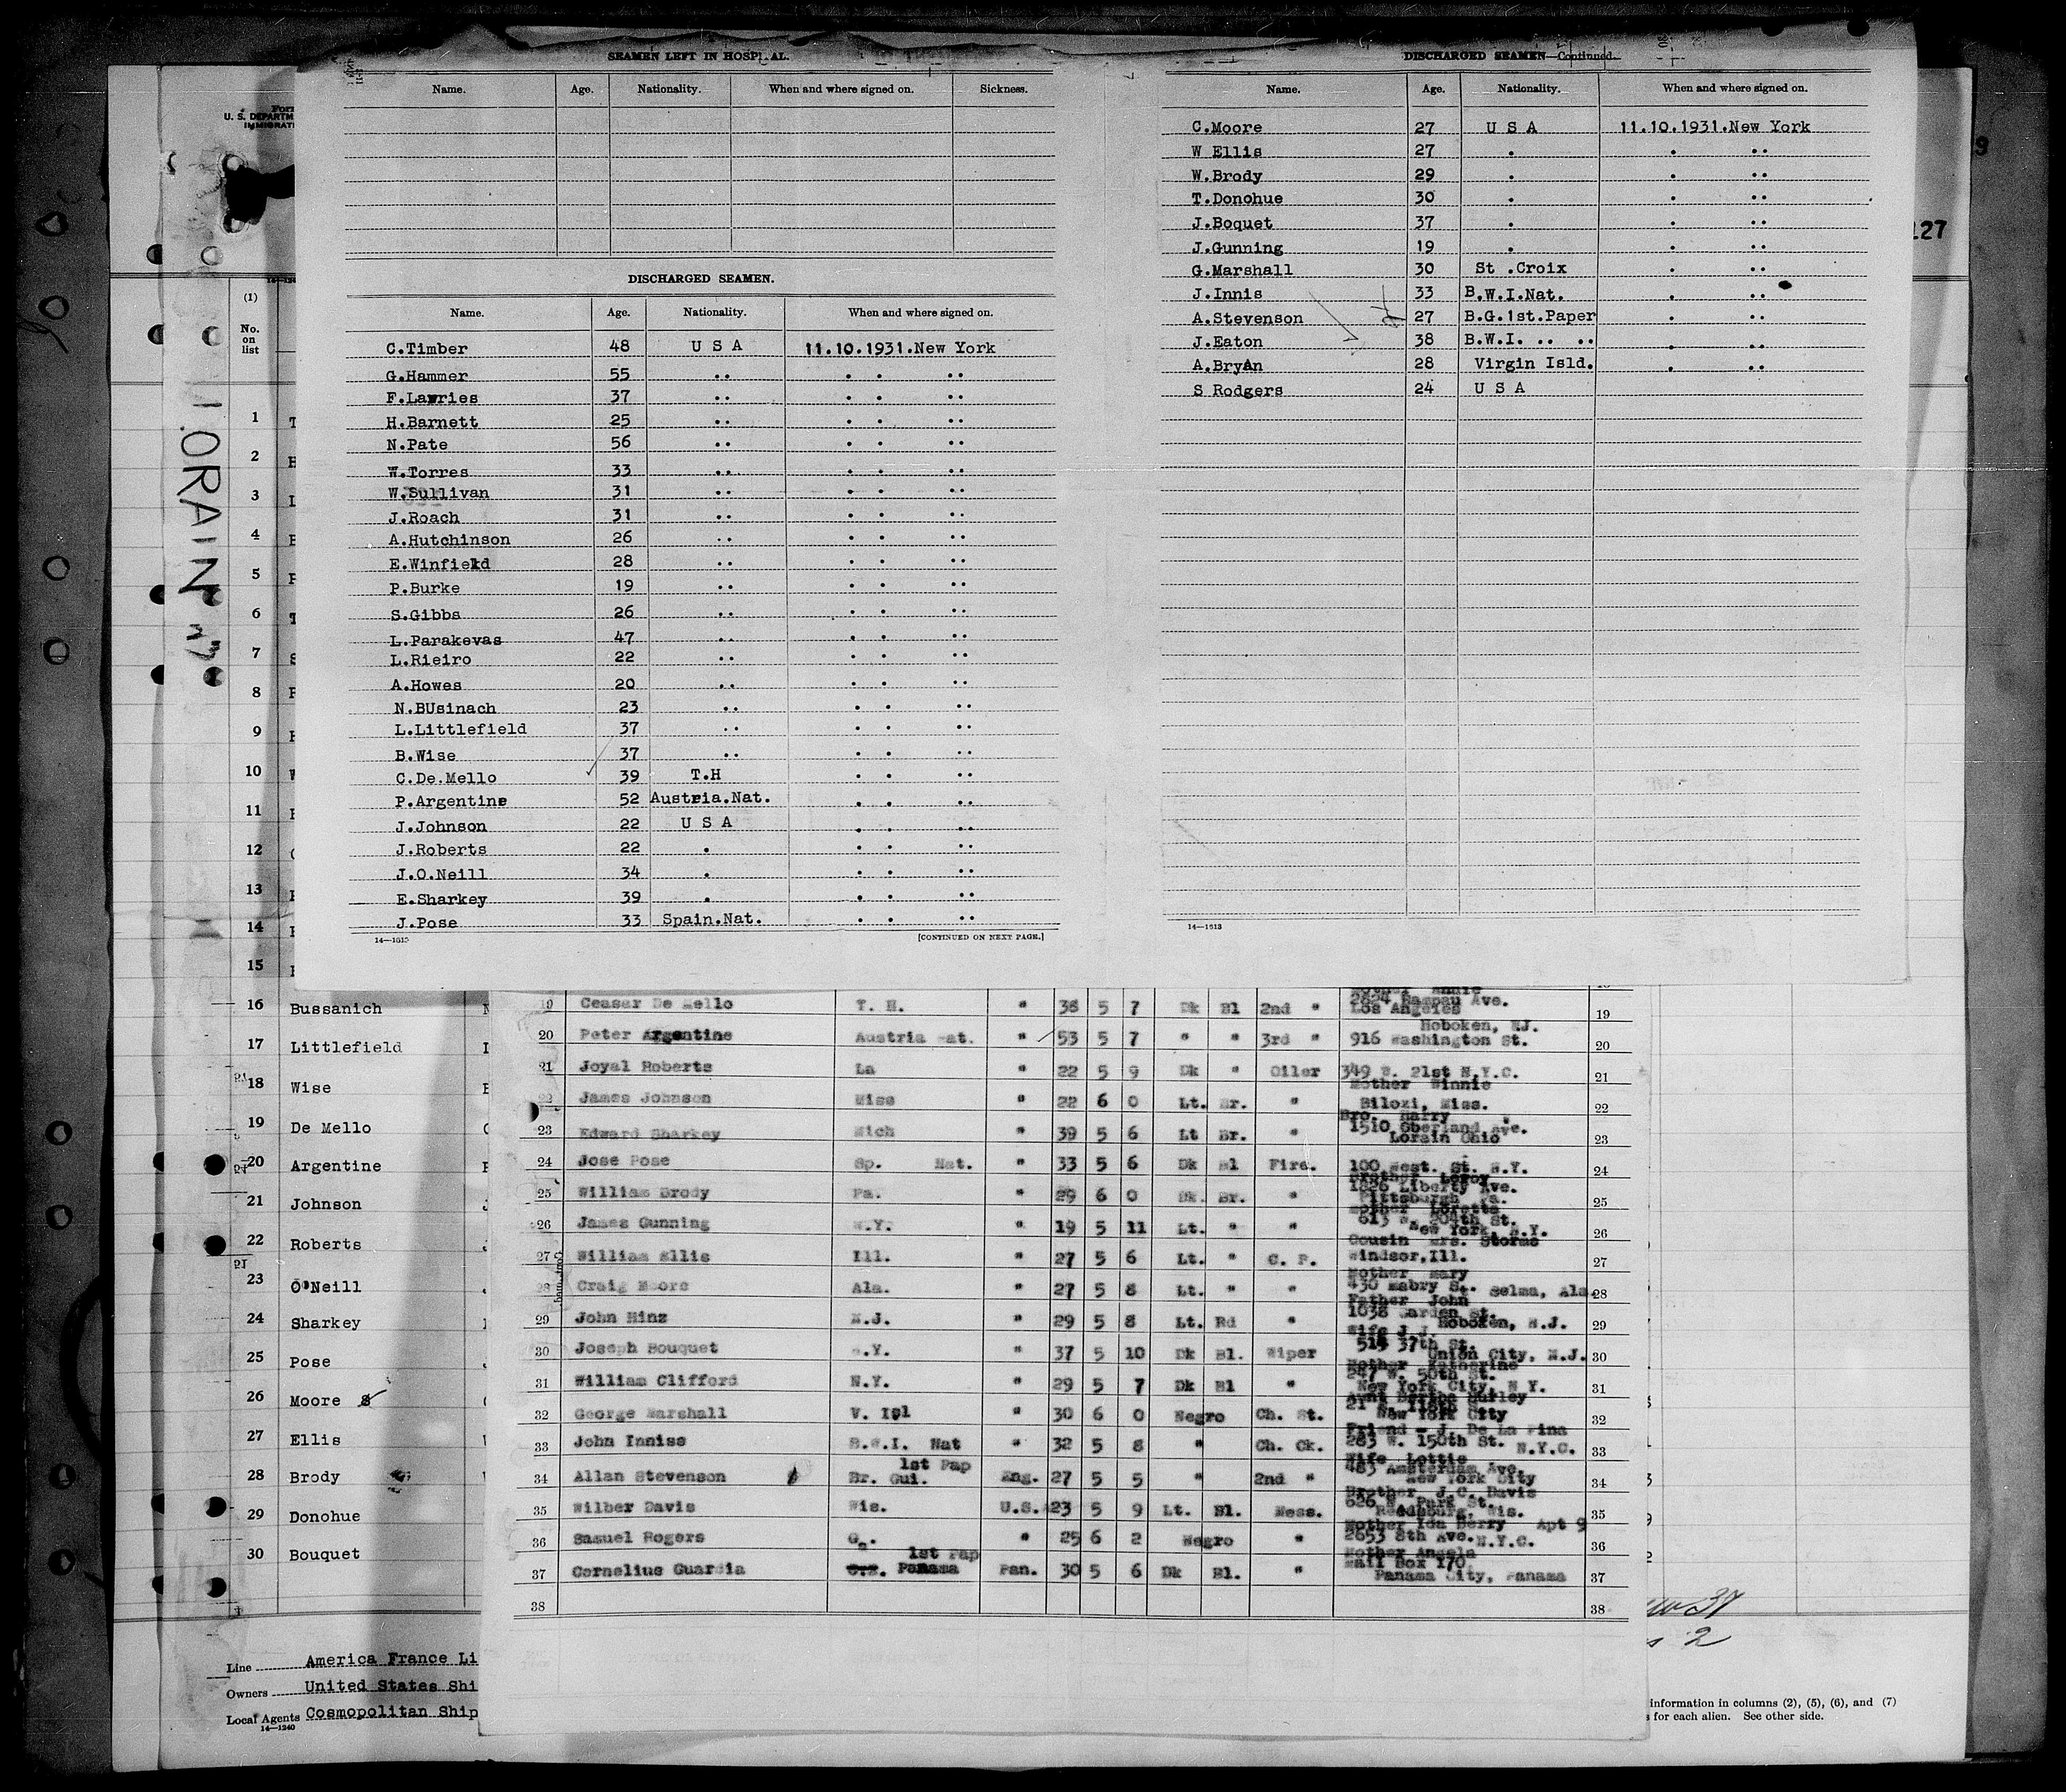 SEAMEN LEFT IN HOSPITAL.
Name. Age. Nationality. When and where signed on. Sickness.
DISCHARGED SEAMEN.
Name. Age. Nationality. When and where signed on.
C.Timber 48 U S A 11.10.1931.New York
G.Hammer 55 .. . . ..
F.Lawries 37 .. . . ..
H.Barnett 25 .. . . ..
N.Pate 56 .. . . ..
W.Torres 33 .. . . ..
W.Sullivan 31 .. . . ..
J.Roach 31 .. . . ..
A.Hutchinson 26 .. . . ..
E.Winfield 28 .. . . ..
P.Burke 19 .. . . ..
S.Gibbs 26 .. . . ..
L.Parakevas 47 .. . . ..
L.Rieiro 22 .. . . ..
A.Howes 20 .. . . ..
N.BUsinach 23 .. . . ..
L.Littlefield 37 .. . . ..
B.Wise 37 .. . . ..
C.De.Mello 39 T.H . . ..
P.Argentine 52 Austria.Nat. . . ..
J.Johnson 22 U S A . . ..
J.Roberts 22 . . . ..
J.O.Neill 34 . . . ..
E.Sharkey 39 . . . ..
J.Pose 33 Spain.Nat. . . ..
[CONTINUED ON NEXT PAGE.]
DISCHARGED SEAMEN—Continued.
Name. Age. Nationality. When and where signed on.
C.Moore 27 U S A 11.10.1931.New York
W Ellis 27 . . ..
W.Brody 29 . . ..
T.Donohue 30 . . ..
J.Boquet 37 . . ..
J.Gunning 19 . . ..
G.Marshall 30 St .Croix . ..
J.Innis 33 B.W.I.Nat. . ..
A.Stevenson 27 B.G.1st.Paper . ..
J.Eaton 38 B.W.I. .. .. . ..
A.BryAn 28 Virgin Isld. . ..
S Rodgers 24 U S A
14—1613
127
U. S. DEPARTM
IMMIGRATI
(1)
No.
on
list
1
2
3
4
5
6
7
8
9
10
11
12
13
14
15
16 Bussanich
17 Littlefield
18 Wise
19 De Mello
20 Argentine
21 Johnson
22 Roberts
23 O'Neill
24 Sharkey
25 Pose
26 Moore
27 Ellis
28 Brody
29 Donohue
30 Bouquet
Line America France Li
Owners United States Shi
Local Agents Cosmopolitan Ship
14—1240
19 Ceasar De Mello T. H. " 38 5 7 Dk Bl 2nd " Los Angeles 19
20 Peter Argentine Austria Nat. " 53 5 7 " " 3rd " Hoboken, NJ. 916 Washington St. 20
21 Joyal Roberts La " 22 5 9 Dk " Oiler 349 W. 21st N.Y.C. 21
22 James Johnson Miss " 22 6 0 Lt. Br. " Mother Winnie Biloxi, Miss. 22
23 Edward Sharkey Mich " 39 5 6 Lt Br. " Bro. Harry 1510 Oberland Ave. Lorain Ohio 23
24 Jose Pose Sp. Nat. " 33 5 6 Dk Bl Fire. 100 West. St. N.Y. 24
25 William Brody Pa. " 29 6 0 Dk. Br. " Brother Leroy 1826 Liberty Ave. Pittsburgh Pa. 25
26 James Gunning N.Y. " 19 5 11 Lt. " " Mother Loretta 613 W. 204th St. New York, N.Y. 26
27 William Ellis Ill. " 27 5 6 Lt. " C. P. Cousin Mrs. Storms Windsor,Ill. 27
28 Craig Moore Ala. " 27 5 8 Lt. " " Mother Mary 430 Mabry St. Selma, Ala. 28
29 John Hinz N.J. " 29 5 8 Lt. Rd " Father John 1038 Garden St. Hoboken, N.J. 29
30 Joseph Bouquet N.Y. " 37 5 10 Dk Bl. Wiper Wife 37th St. Union City, N.J. 30
31 William Clifford N.Y. " 29 5 7 Dk Bl " Mother Katherine 247 W. 50th St. New York City, N Y. 31
32 George Marshall V. Isl " 30 6 0 Negro Ch. St. Aunt Bertha New York City 32
33 John Inniss B.W.I. Nat " 32 5 8 " Ch. Ck. Friend - J. De La Pina 283 W. 150th St. N.Y.C. 33
34 Allan Stevenson Br. Gui. 1st Pap Eng. 27 5 5 " 2nd " Wife Lottie 483 Amsterdam Ave. New York City 34
35 Wilber Davis Wis. U.S. 23 5 9 Lt. Bl. Mess. Brother J.C. Davis 626 N. Park St. Reedsburg, Wis. 35
36 Samuel Rogers Ga. " 25 6 2 Negro " Mother Ida Berry Apt 9 2653 8th Ave. N.Y.C. 36
37 Cornelius Guardia 1st Pap Panama Pan. 30 5 6 Dk Bl. " Mother Angela Mail Box 170 Panama City, Panama 37
38 38
information in columns (2), (5), (6), and (7)
for each alien. See other side.